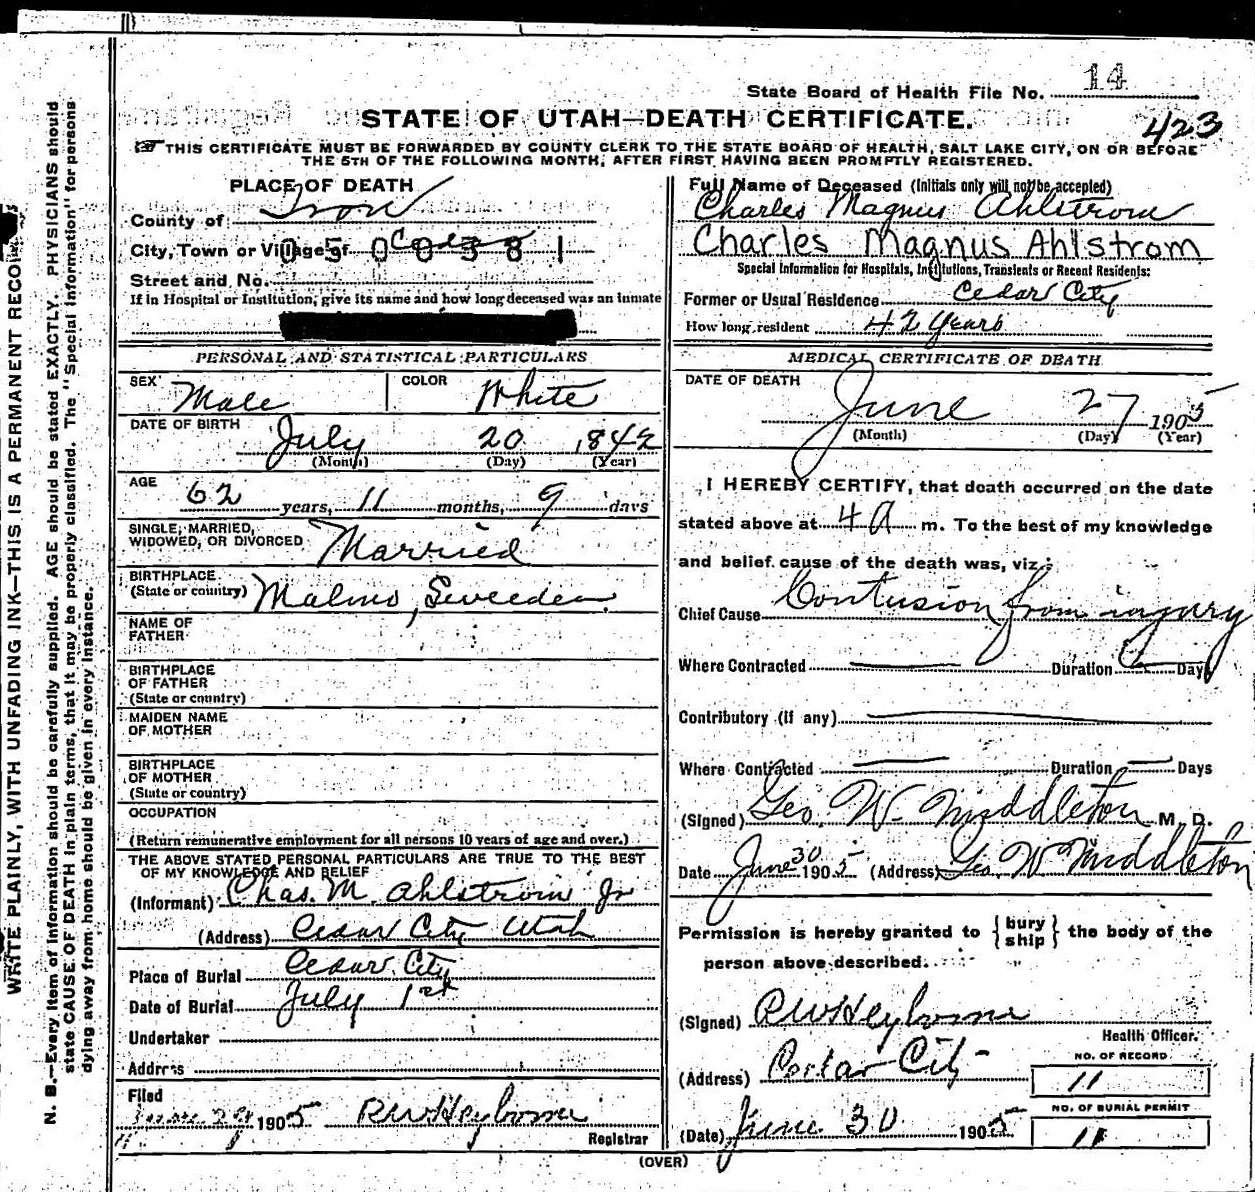 State Board of Health File No. 14
STATE OF UTAH—DEATH CERTIFICATE.
423
THIS CERTIFICATE MUST BE FORWARDED BY COUNTY CLERK TO THE STATE BOARD OF HEALTH, SALT LAKE CITY, ON OR BEFORE
THE 5TH OF THE FOLLOWING MONTH, AFTER FIRST HAVING BEEN PROMPTLY REGISTERED.
PLACE OF DEATH
County of Iron
City, Town or Village of Cedar
0500381
Street and No.
If in Hospital or Institution, give its name and how long deceased was an inmate
PERSONAL AND STATISTICAL PARTICULARS
SEX Male COLOR White
DATE OF BIRTH
July 20 1842
(Month) (Day) (Year)
AGE
62 years, 11 months, 9 days
SINGLE, MARRIED,
WIDOWED, OR DIVORCED Married
BIRTHPLACE
(State or country) Malmo, Sweeden
NAME OF
FATHER
BIRTHPLACE
OF FATHER
(State or country)
MAIDEN NAME
OF MOTHER
BIRTHPLACE
OF MOTHER
(State or country)
OCCUPATION
(Return remunerative employment for all persons 10 years of age and over.)
THE ABOVE STATED PERSONAL PARTICULARS ARE TRUE TO THE BEST
OF MY KNOWLEDGE AND BELIEF
(Informant) Chas. M. Ahlstrom Jr
(Address) Cedar City Utah
Place of Burial Cedar City
Date of Burial July 1st
Undertaker
Address
Filed
June 29 1905 RW Heyborne
Registrar
Full Name of Deceased (Initials only will not be accepted)
Charles Magnus Ahlstrom
Charles Magnus Ahlstrom
Special Information for Hospitals, Institutions, Transients or Recent Residents:
Former or Usual Residence Cedar City
How long resident 42 Years
MEDICAL CERTIFICATE OF DEATH
DATE OF DEATH
June 27 1905
(Month) (Day) (Year)
I HEREBY CERTIFY, that death occurred on the date
stated above at 4 A m. To the best of my knowledge
and belief cause of the death was, viz:
Chief Cause Contusion from injury
Where Contracted Duration Days
Contributory (if any)
Where Contracted Duration Days
(Signed) Geo. W. Middleton M. D.
Date June 30 1905 (Address) Geo. W Middleton
Permission is hereby granted to {bury
ship} the body of the
person above described.
(Signed) RW Heyborne
Health Officer.
(Address) Cedar City
NO. OF RECORD
11
NO. OF BURIAL PERMIT
11
(Date) June 30 1905
(OVER)
WRITE PLAINLY, WITH UNFADING INK—THIS IS A PERMANENT RECORD
N. B.—Every item of information should be carefully supplied. AGE should be stated EXACTLY. PHYSICIANS should
state CAUSE OF DEATH in plain terms, that it may be properly classified. The "Special Information" for persons
dying away from home should be given in every instance.